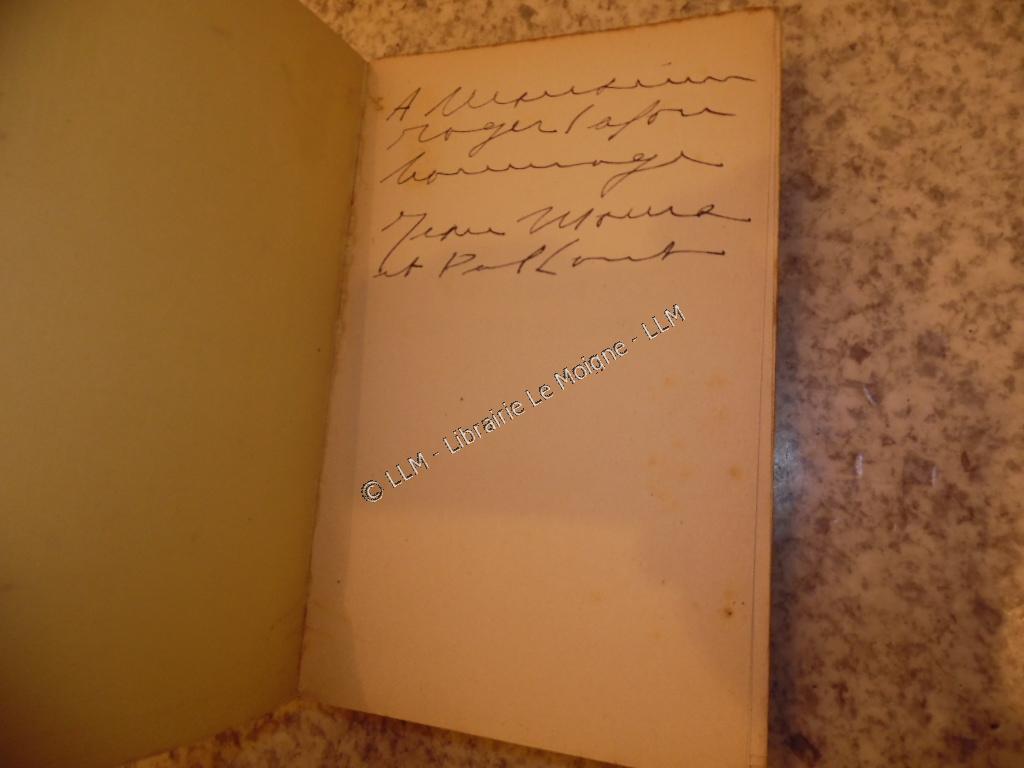 A Monsieur
Roger Lafon
hommage
Jean Moura
et Paul Louvet
© LLM - Librairie Le Moigne - LLM